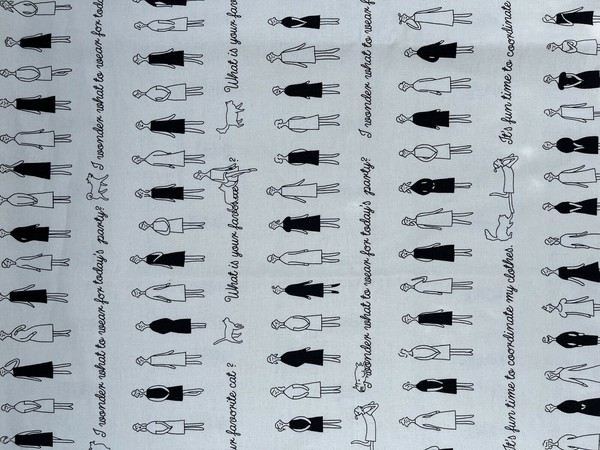 I wonder what to wear for today's party?
I wonder what to wear for toda
ur favorite cat ?
What is your favorite cat ?
What is your fav
I wonder what to wear for today's party?
I wonder what to wear f
It's fun time to coordinate my clothes.
It's fun time to coordinate